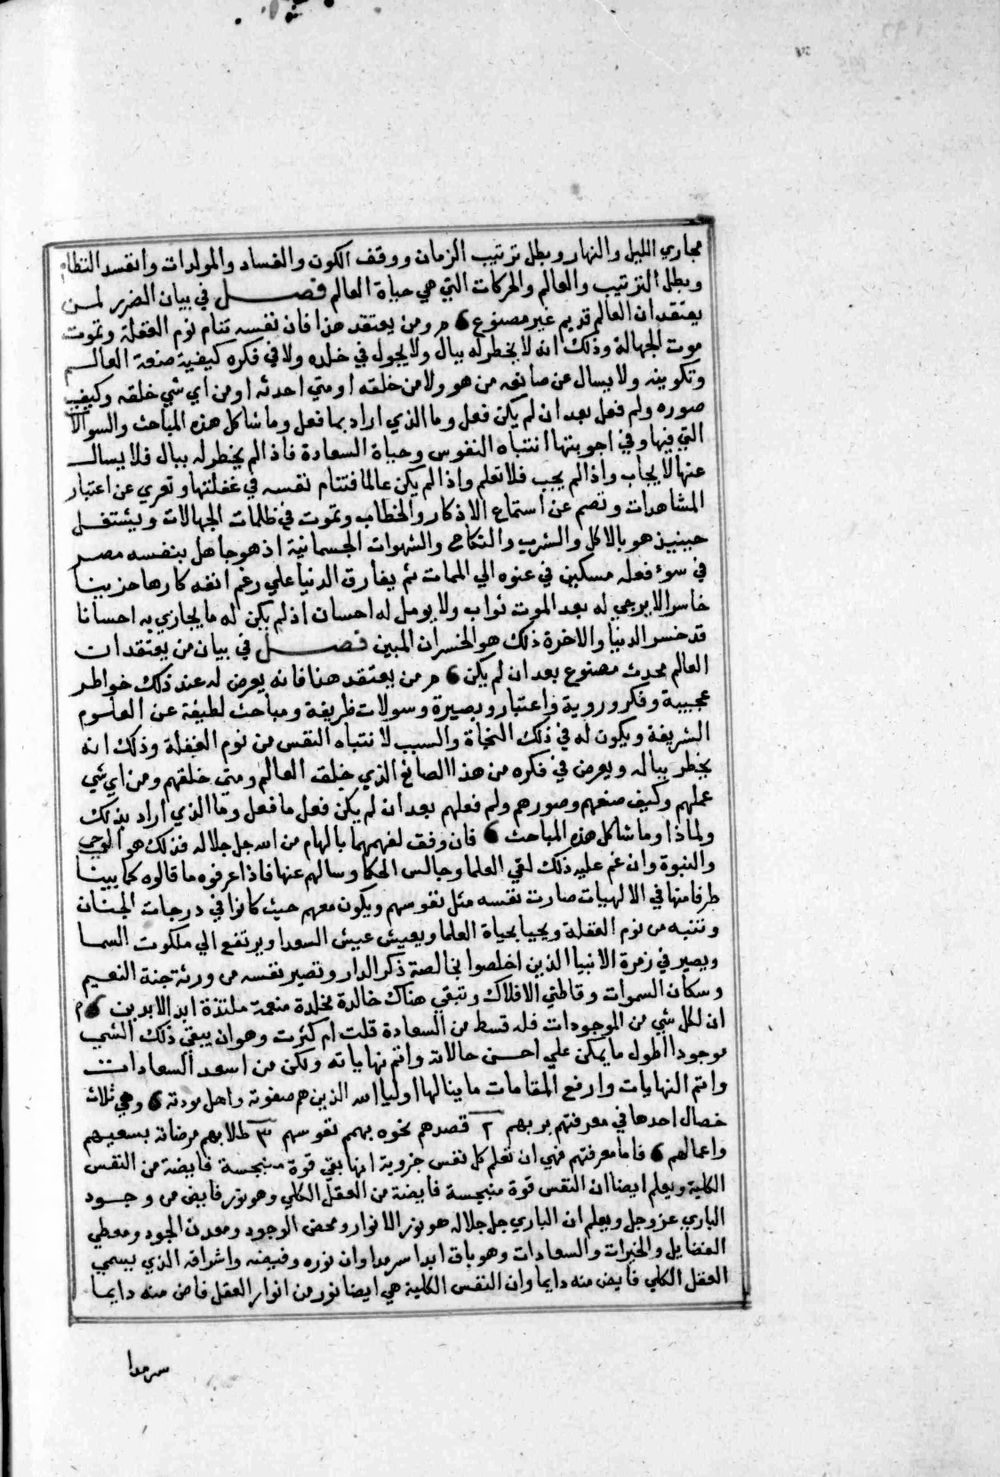 مجاري الليل والنهار وبطل ترتيب الزمان ووقف الكون والفساد والمولدات وانفسد النظام
وبطل الترتيب والعالم والحركات التي هي حياة العالم فصل في بيان الضرر لمن
يعتقد ان العالم قديم غير مصنوع 6 م ومن يعتقد هذا فان نفسه تنام نوم الغفلة وتموت
موت الجهالة وذلك انه لا يخطر له ببال ولا يجول في خلده ولا في فكره كيفية صنعة العالم
وتكوينه ولا يسال عن صانعه من هو ولا من خلقه او متي احدثه او من اي شي خلقه وكيف
صوره ولم فعل بعد ان لم يكن فعل وما الذي اراد بما فعل وما شاكل هذه المباحث والسوالات
التي فيها وفي اجوبتها انتباه النفوس وحياة السعادة فاذا لم يخطر له ببال فلا يسال
عنها لا يجاب واذا لم يجب فلا تعلم واذا لم يكن عالما فتنام نفسه في غفلتها وتعري عن اعتبار
المشاهدات وتصم عن استماع الاذكار والخطاب وتموت في ظلمات الجهالات ويشتغل
حينيذ هو بالاكل والشرب والنكاح والشهوات الجسمانية اذ هو جاهل بنفسه مصر
في سوء فعله مسكين في عتوه الي الممات ثم يفارق الدنيا علي رغم انفه كارها حزينا
خاسرا لا يرجي له بعد الموت ثواب ولا يومل له احسان اذ لم يكن له ما يجازي به احسانا
قد خسر الدنيا والاخرة ذلك هو الخسران المبين فصل في بيان من يعتقد ان
العالم محدث مصنوع بعد ان لم يكن 6 م من يعتقد هذا فانه يعرض له عند ذلك خواطر
عجيبة وفكر وروية واعتبار وبصيرة وسولات ظريفة ومباحث لطيفة عن العلوم
الشريفة ويكون له في ذلك النجاة والسبب لانتباه النفس من نوم الغفلة وذلك انه
يخطر بباله ويعرض في فكره من هذا الصانع الذي خلق العالم ومتي خلقهم ومن اي شي
عملهم وكيف صنعهم وصورهم ولم فعلهم بعد ان لم يكن فعل ما فعل وما الذي اراد بذلك
ولماذا وما شاكل هذه المباحث 6 فان وفق لفهمها بالهام من الله جل جلاله فذلك هو الوحي
والنبوة وان غم عليه ذلك لقي العلما وجالس الحكما وسالهم عنها فاذا عرفوه ما قالوه كما بينا
طرفا منها في الالهيات صارت نفسه مثل نفوسهم ويكون معهم حيث كانوا في درجات الجنان
وتنتبه من نوم الغفلة ويحيا بحياة العلما ويعيش عيش السعدا ويرتفع الي ملكوت السما
ويصير في زمرة الانبيا الذين اخلصوا بخالصة ذكر الدار وتصير نفسه من ورثة جنة النعيم
وسكان السموات وقاطني الافلاك وتبقي هناك خالدة مخلدة منعمة ملتذة ابد الابدين 6 م
ان لكل شي من الموجودات فله قسط من السعادة قلت ام كثرت وهو ان يبقي ذلك الشي
موجودا اطول ما يمكن علي احسن حالاته واتم نهاياته ولكن من اسعد السعادات
واتم النهايات وارفع المقامات ما ينالها اوليا الله الذين هم صفوته واهل مودته 6 وهي ثلاث
خصال احدها في معرفتهم بربهم ٢ قصدهم نحوه بهمم نفوسهم ٣ طلابهم مرضاته بسعيهم
واعمالهم 6 فاما معرفتهم فهي ان تعلم كل نفس جزوية انها بقي قوة منبجسة فايضة من النفس
الكلية ويعلم ايضا ان النفس قوة منبجسة فايضة من العقل الكلي وهو نور فايض من وجود
الباري عز وجل ويعلم ان الباري جل جلاله هو نور الانوار ومحض الوجود ومعدن الجود ومعطي
الفضايل والخيرات والسعادات وهو باق ابدا سرمدا وان نوره وفيضه واشراقه الذي يسمي
العقل الكلي فايض منه دايما وان النفس الكلية هي ايضا نور من انوار العقل فاض منه دايما
سرمدا